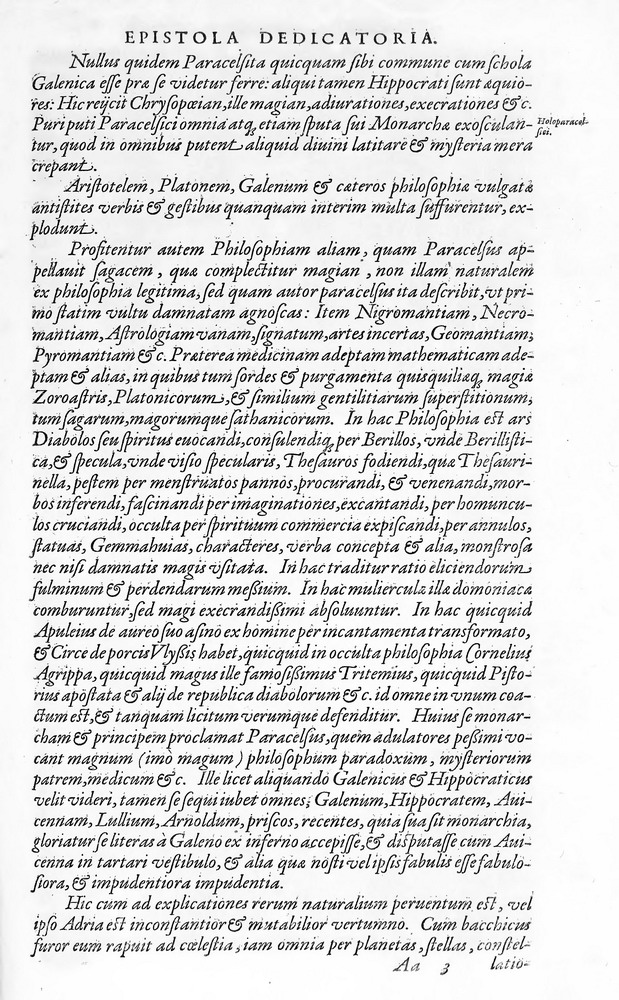 EPISTOLA DEDICATORIA.
Nullus quidem Paracelsita quicquam sibi commune cum schola
Galenica esse præ se videtur ferre: aliqui tamen Hippocrati sunt æquio-
res: Hic reijcit Chrysopœian, ille magian, adiurationes, execrationes &c.
Puri puti Paracelsici omnia atq; etiam sputa sui Monarchæ exosculan-
tur, quod in omnibus putent aliquid diuini latitare & mysteria mera
crepant.
Holoparacel-
sici.
Aristotelem, Platonem, Galenum & cæteros philosophiæ vulgatæ
antistites verbis & gestibus quanquam interim multa suffurentur, ex-
plodunt.
Profitentur autem Philosophiam aliam, quam Paracelsus ap-
pellauit sagacem, quæ complectitur magian, non illam naturalem
ex philosophia legitima, sed quam autor paracelsus ita describit, vt pri-
mo statim vultu damnatam agnoscas: Item Nigromantiam, Necro-
mantiam, Astrologiam vanam, signatum, artes incertas, Geomantiam,
Pyromantiam &c. Præterea medicinam adeptam mathematicam ade-
ptam & alias, in quibus tum sordes & purgamenta quisquiliæq; magiæ
Zoroastris, Platonicorum, & similium gentilitiarum superstitionum,
tum sagarum, magorumque sathanicorum. In hac Philosophia est ars
Diabolos seu spiritus euocandi, consulendiq; per Berillos, vnde Berillisti-
ca, & specula, vnde visio specularis, Thesauros fodiendi, quæ Thesauri-
nella, pestem per menstruatos pannos, procurandi, & venenandi, mor-
bos inferendi, fascinandi per imaginationes, excantandi, per homuncu-
los cruciandi, occulta per spirituum commercia expiscandi, per annulos,
statuas, Gemmahuias, characteres, verba concepta & alia, monstrosa
nec nisi damnatis magis vsitata. In hac traditur ratio eliciendorum
fulminum & perdendarum messium. In hac mulierculæ illæ domoniacæ
comburuntur, sed magi execrandissimi absoluuntur. In hac quicquid
Apuleius de aureo suo asino ex homine per incantamenta transformato,
& Circe de porcis Vlyssis habet, quicquid in occulta philosophia Cornelius
Agrippa, quicquid magus ille famosissimus Tritemius, quicquid Pisto-
rius apostata & alij de republica diabolorum &c. id omne in vnum coa-
ctum est, & tanquam licitum verumque defenditur. Huius se monar-
cham & principem proclamat Paracelsus, quem adulatores pessimi vo-
cant magnum (imò magum) philosophum paradoxum, mysteriorum
patrem, medicum &c. Ille licet aliquando Galenicus & Hippocraticus
velit videri, tamen se sequi iubet omnes, Galenum, Hippocratem, Aui-
cennam, Lullium, Arnoldum, priscos, recentes, quia sua sit monarchia,
gloriatur se literas à Galeno ex inferno accepisse, & disputasse cum Aui-
cenna in tartari vestibulo, & alia quæ nosti vel ipsis fabulis esse fabulo-
siora, & impudentiora impudentia.
Hic cum ad explicationes rerum naturalium peruentum est, vel
ipso Adria est inconstantior & mutabilior vertumno. Cum bacchicus
furor eum rapuit ad cœlestia, iam omnia per planetas, stellas, constel-
Aa 3 latio-